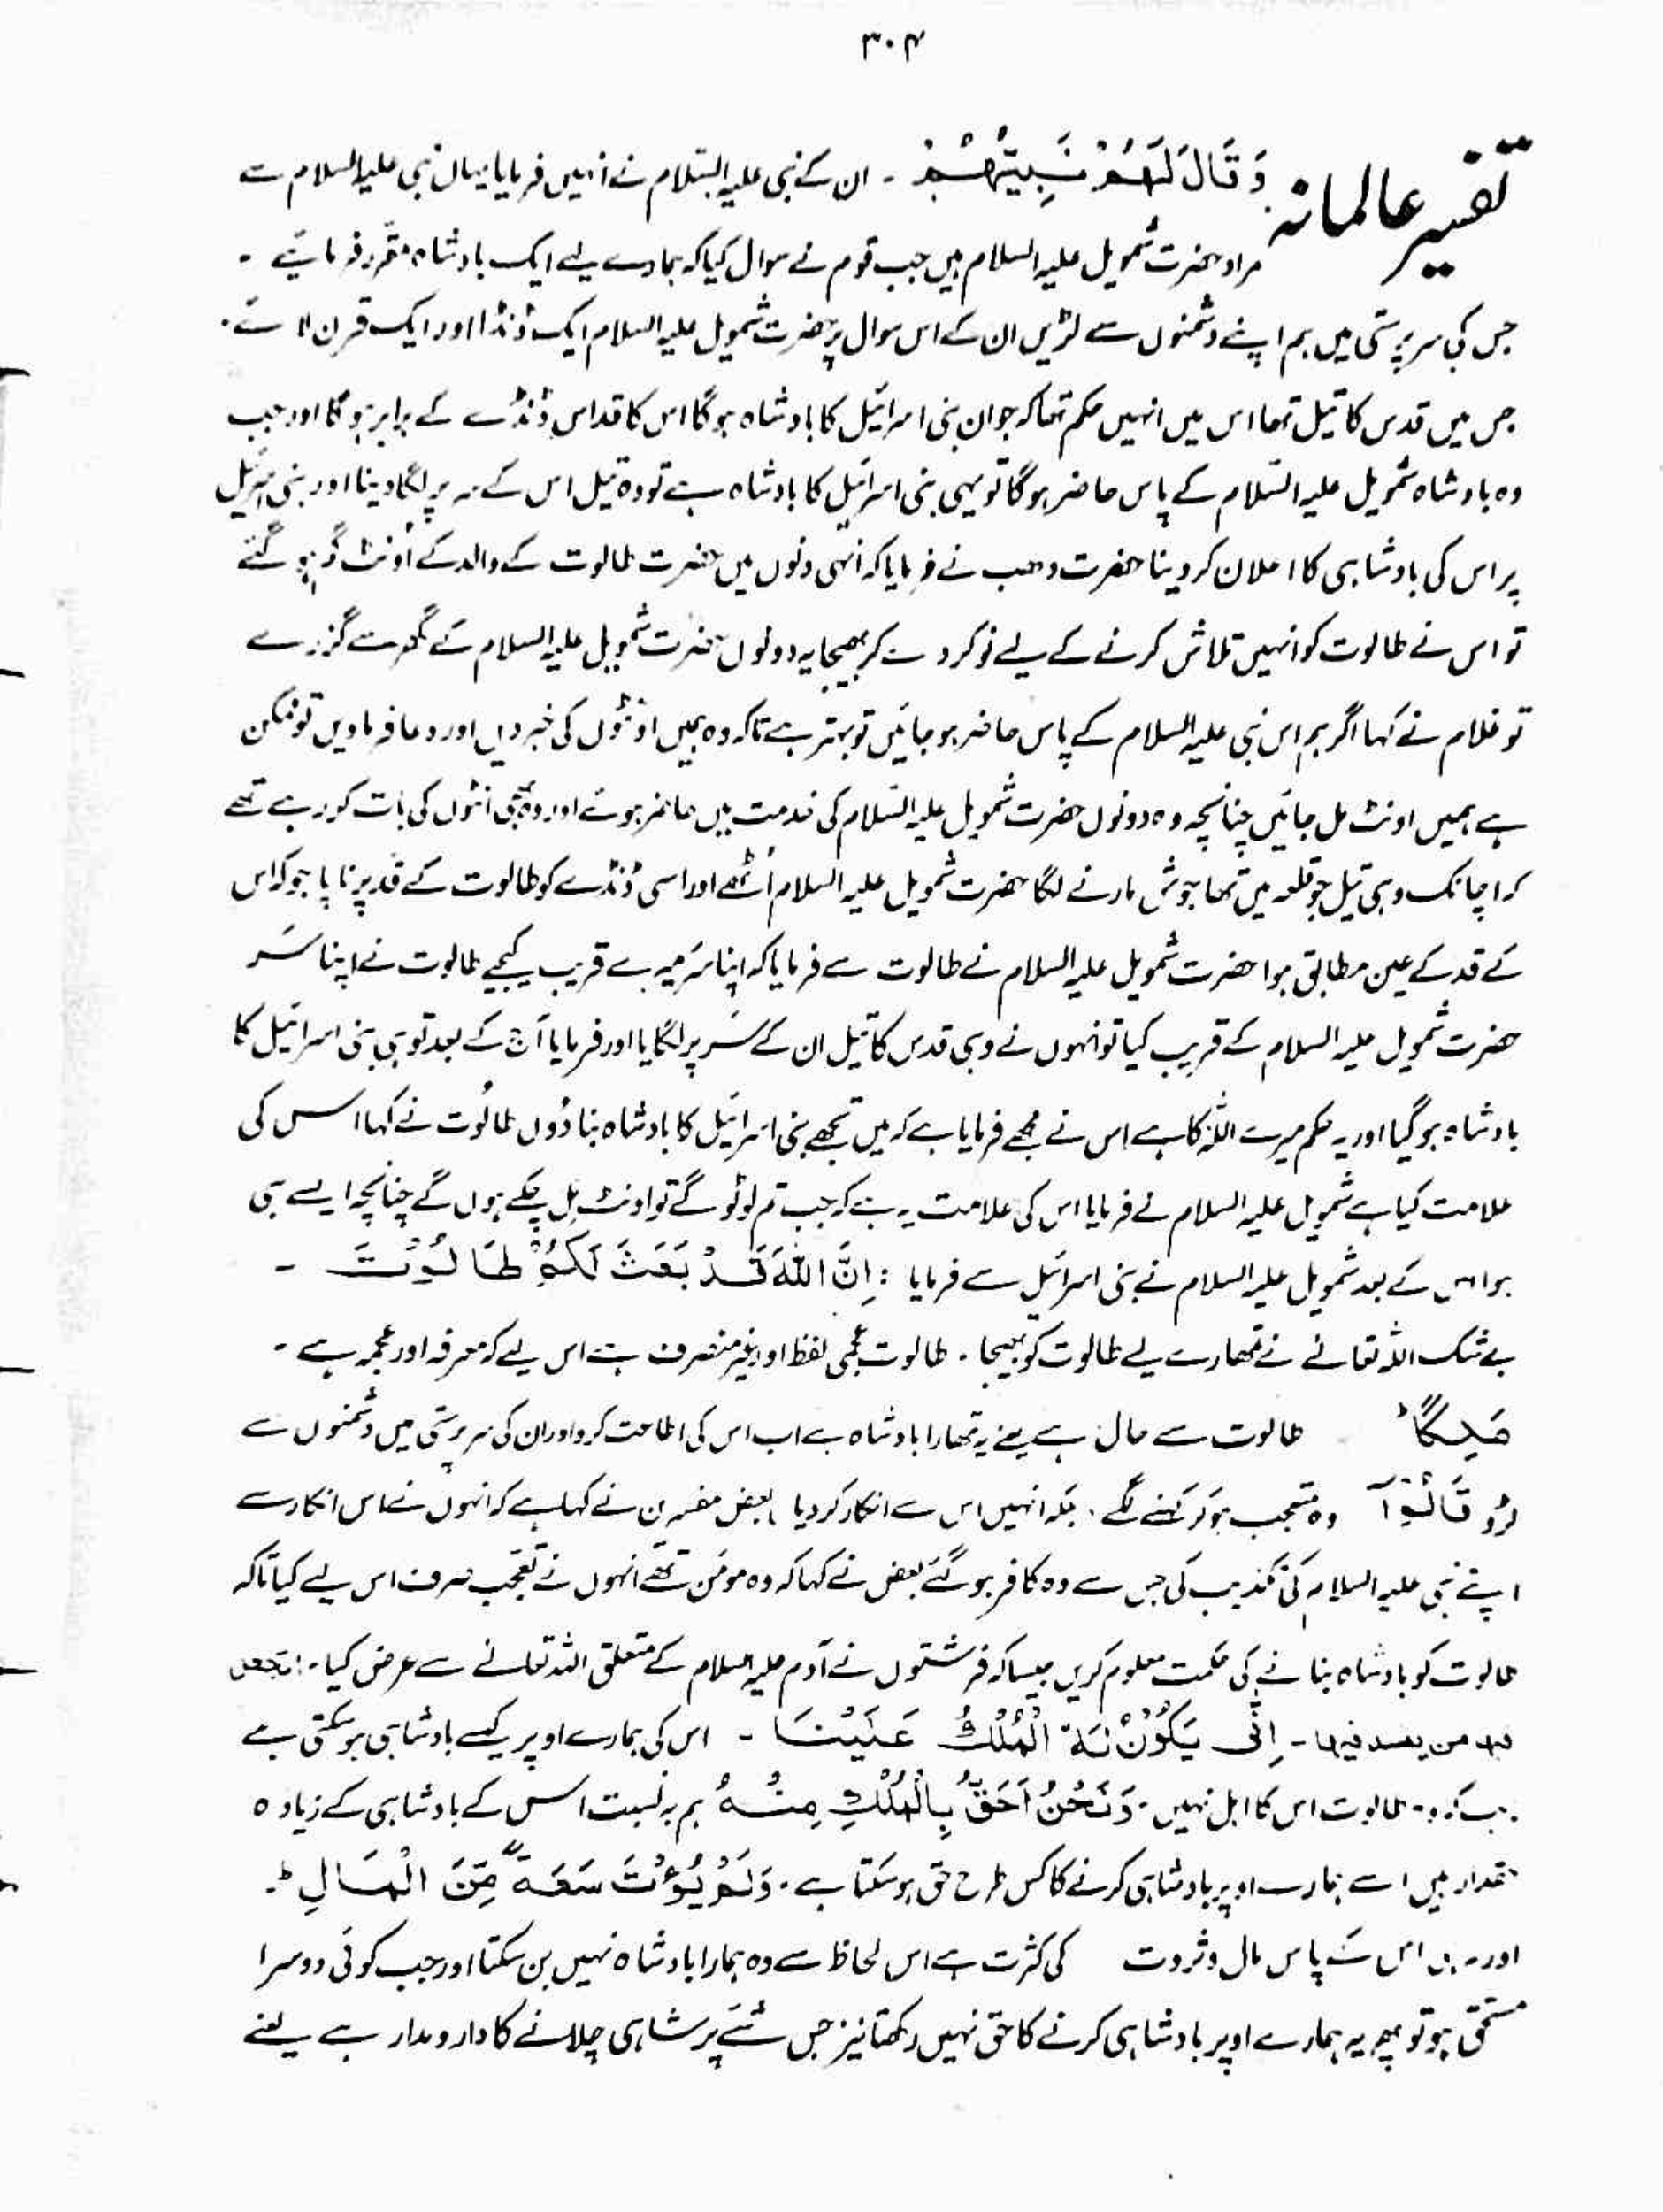 ۳۰۴
تفسیر عالمانہ وَ قَالَ لَهُمْ نَبِيُّهُمْ ۔ ان کے نبی علیہ السلام نے انہیں فرمایا یہاں نبی علیہ السلام سے
مراد حضرت شمویل علیہ السلام ہیں جب قوم نے سوال کیا کہ ہمارے لیے ایک بادشاہ مقرر فرمائیے ۔
جس کی سرپرستی میں ہم اپنے دشمنوں سے لڑیں ان کے اس سوال پر حضرت شمویل علیہ السلام ایک ڈنڈا اور ایک قرن لائے ۔
جس میں قدس کا تیل تھا اس میں انہیں حکم تھا کہ جو ان بنی اسرائیل کا بادشاہ ہو گا اس کا قد اس ڈنڈے کے برابر ہو گا اور جب
وہ بادشاہ شمویل علیہ السلام کے پاس حاضر ہو گا تو یہی بنی اسرائیل کا بادشاہ ہے تو وہ تیل اس کے سر پر لگا دینا اور بنی اسرائیل
پر اس کی بادشاہی کا اعلان کر دینا حضرت وھب نے فرمایا کہ انہی دنوں میں حضرت طالوت کے والد کے اُونٹ گم ہو گئے
تو اس نے طالوت کو انہیں تلاش کرنے کے لیے نوکر دے کر بھیجا یہ دونوں حضرت شمویل علیہ السلام کے گھر سے گزرے
تو غلام نے کہا اگر ہم اس نبی علیہ السلام کے پاس حاضر ہو جائیں تو بہتر ہے تاکہ وہ ہمیں اونٹوں کی خبر دیں اور دعا فرماویں تو ممکن
ہے ہمیں اونٹ مل جائیں چنانچہ وہ دونوں حضرت شمویل علیہ السلام کی خدمت میں حاضر ہوئے اور وہ بھی انٹوں کی بات کو رہے تھے
کہ اچانک وہی تیل جو قلعہ میں تھا جوش مارنے لگا حضرت شمویل علیہ السلام اُٹھے اور اسی ڈنڈے کو طالوت کے قد پر ناپا جو کہ اس
کے قد کے عین مطابق ہوا حضرت شمویل علیہ السلام نے طالوت سے فرمایا کہ اپنا سَر میرے قریب کیجیے طالوت نے اپنا سَر
حضرت شمویل علیہ السلام کے قریب کیا تو انہوں نے وہی قدس کا تیل ان کے سَر پر لگایا اور فرمایا آج کے بعد تو ہی بنی اسرائیل کا
بادشاہ ہو گیا اور یہ حکم میرے اللہ کا ہے اس نے مجھے فرمایا ہے کہ میں تجھے بنی اسرائیل کا بادشاہ بنا دُوں طالُوت نے کہا اس کی
علامت کیا ہے شمویل علیہ السلام نے فرمایا اس کی علامت یہ ہے کہ جب تم لوٹو گے تو اونٹ مِل چکے ہوں گے چنانچہ ایسے ہی
ہوا اس کے بعد شمویل علیہ السلام نے بنی اسرائیل سے فرمایا : اِنَّ اللّٰهَ قَدْ بَعَثَ لَكُمْ طَالُوْتَ ۔
بے شک اللہ تعالےٰ نے تمھارے لیے طالوت کو بھیجا ۔ طالوت عجمی لفظ اور غیر منصرف ہے اس لیے کہ معرفہ اور عجمہ ہے ۔
مَلِكًا ؕ طالوت سے حال ہے یعنے یہ تمھارا بادشاہ ہے اب اس کی اطاعت کرو اور ان کی سرپرستی میں دشمنوں سے
لڑو قَالُوْٓا وہ متعجب ہو کر کہنے لگے ۔ بلکہ انہیں اس سے انکار کر دیا بعض مفسرین نے کہا ہے کہ انہوں نے اس انکار سے
اپنے نبی علیہ السلام کی تکذیب کی جس سے وہ کافر ہو گئے بعض نے کہا کہ وہ مومن تھے انہوں نے تعجب صرف اس لیے کیا تاکہ
طالوت کو بادشاہ بنانے کی حکمت معلوم کریں جیسا کہ فرشتوں نے آدم علیہ السلام کے متعلق اللہ تعالےٰ سے عرض کیا ۔ اتجعل
فیھا من یفسد فیھا ۔ اِنّٰى يَكُوْنُ لَهُ الْمُلْكُ عَلَيْنَا ۔ اس کی ہمارے اوپر کیسے بادشاہی ہو سکتی ہے
جب کہ وہ طالوت اس کا اہل نہیں ۔ وَ نَحْنُ اَحَقُّ بِالْمُلْكِ مِنْهُ ہم بہ نسبت اس کے بادشاہی کے زیادہ
حقدار ہیں اسے ہمارے اوپر بادشاہی کرنے کا کس طرح حق ہو سکتا ہے ۔ وَلَمْ يُؤْتَ سَعَةً مِّنَ الْمَالِ ؕ ۔
اور اس کے پاس مال و ثروت کی کثرت ہے اس لحاظ سے وہ ہمارا بادشاہ نہیں بن سکتا اور جب کوئی دوسرا
مستحق ہو تو پھر یہ ہمارے اوپر بادشاہی کرنے کا حق نہیں رکھتا نیز جس شئے پر شاہی چلانے کا دارومدار ہے یعنے